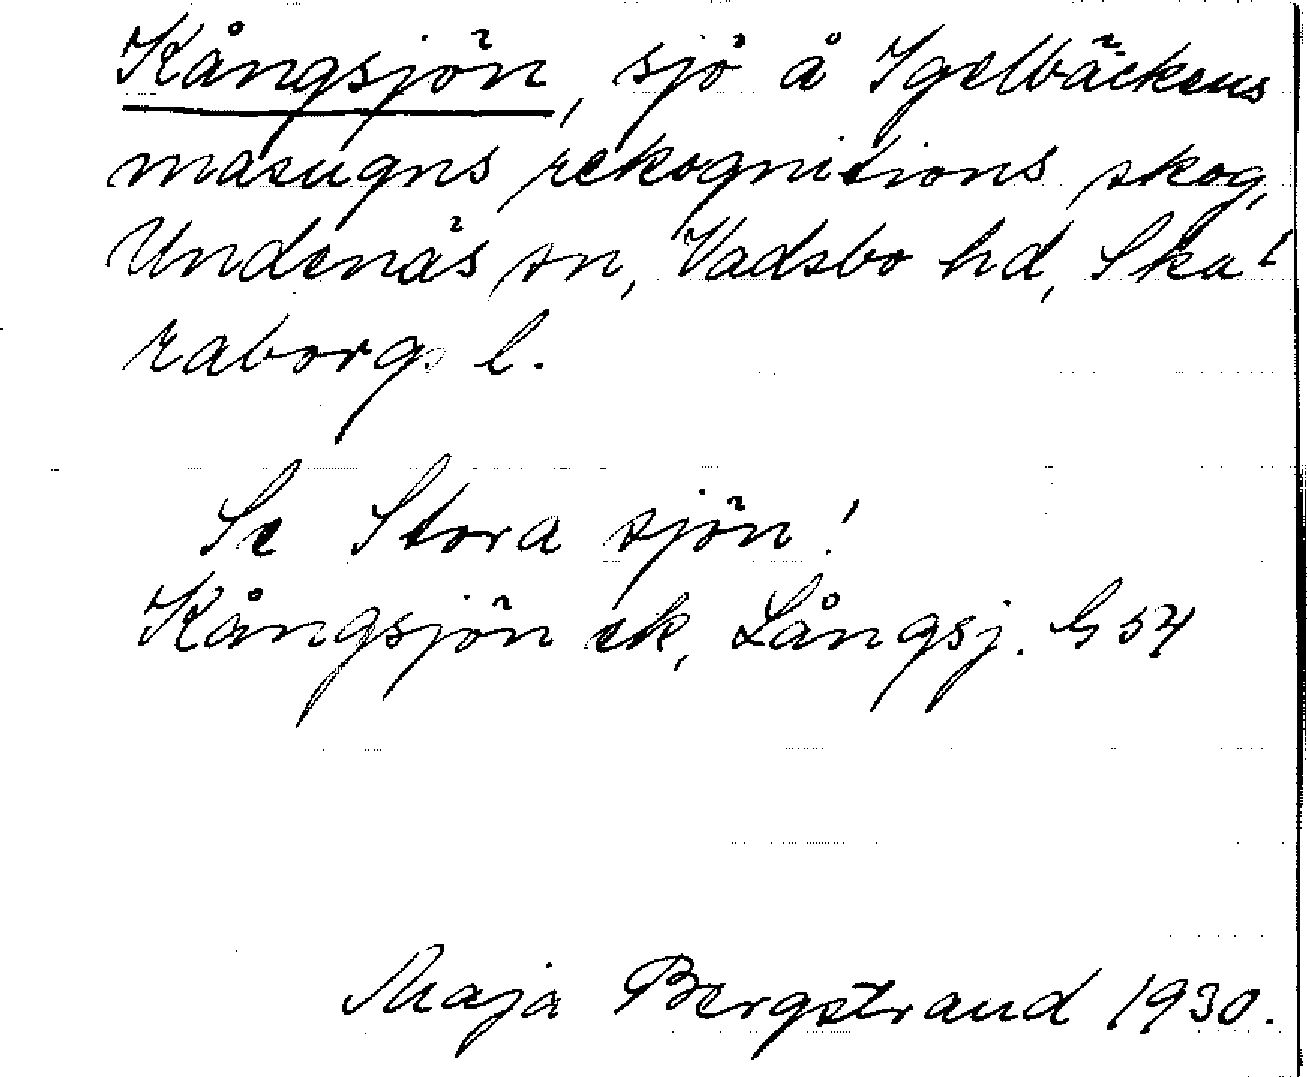 Kångsjön, sjö å Igelbäckens
masugns rekognitions skog,
Undenäs sn, Vadsbo hd, Ska-
raborgs l.
Se Stora sjön!
Kångsjön ek, Långsj. G 54
Maja Bergstrand 1930.